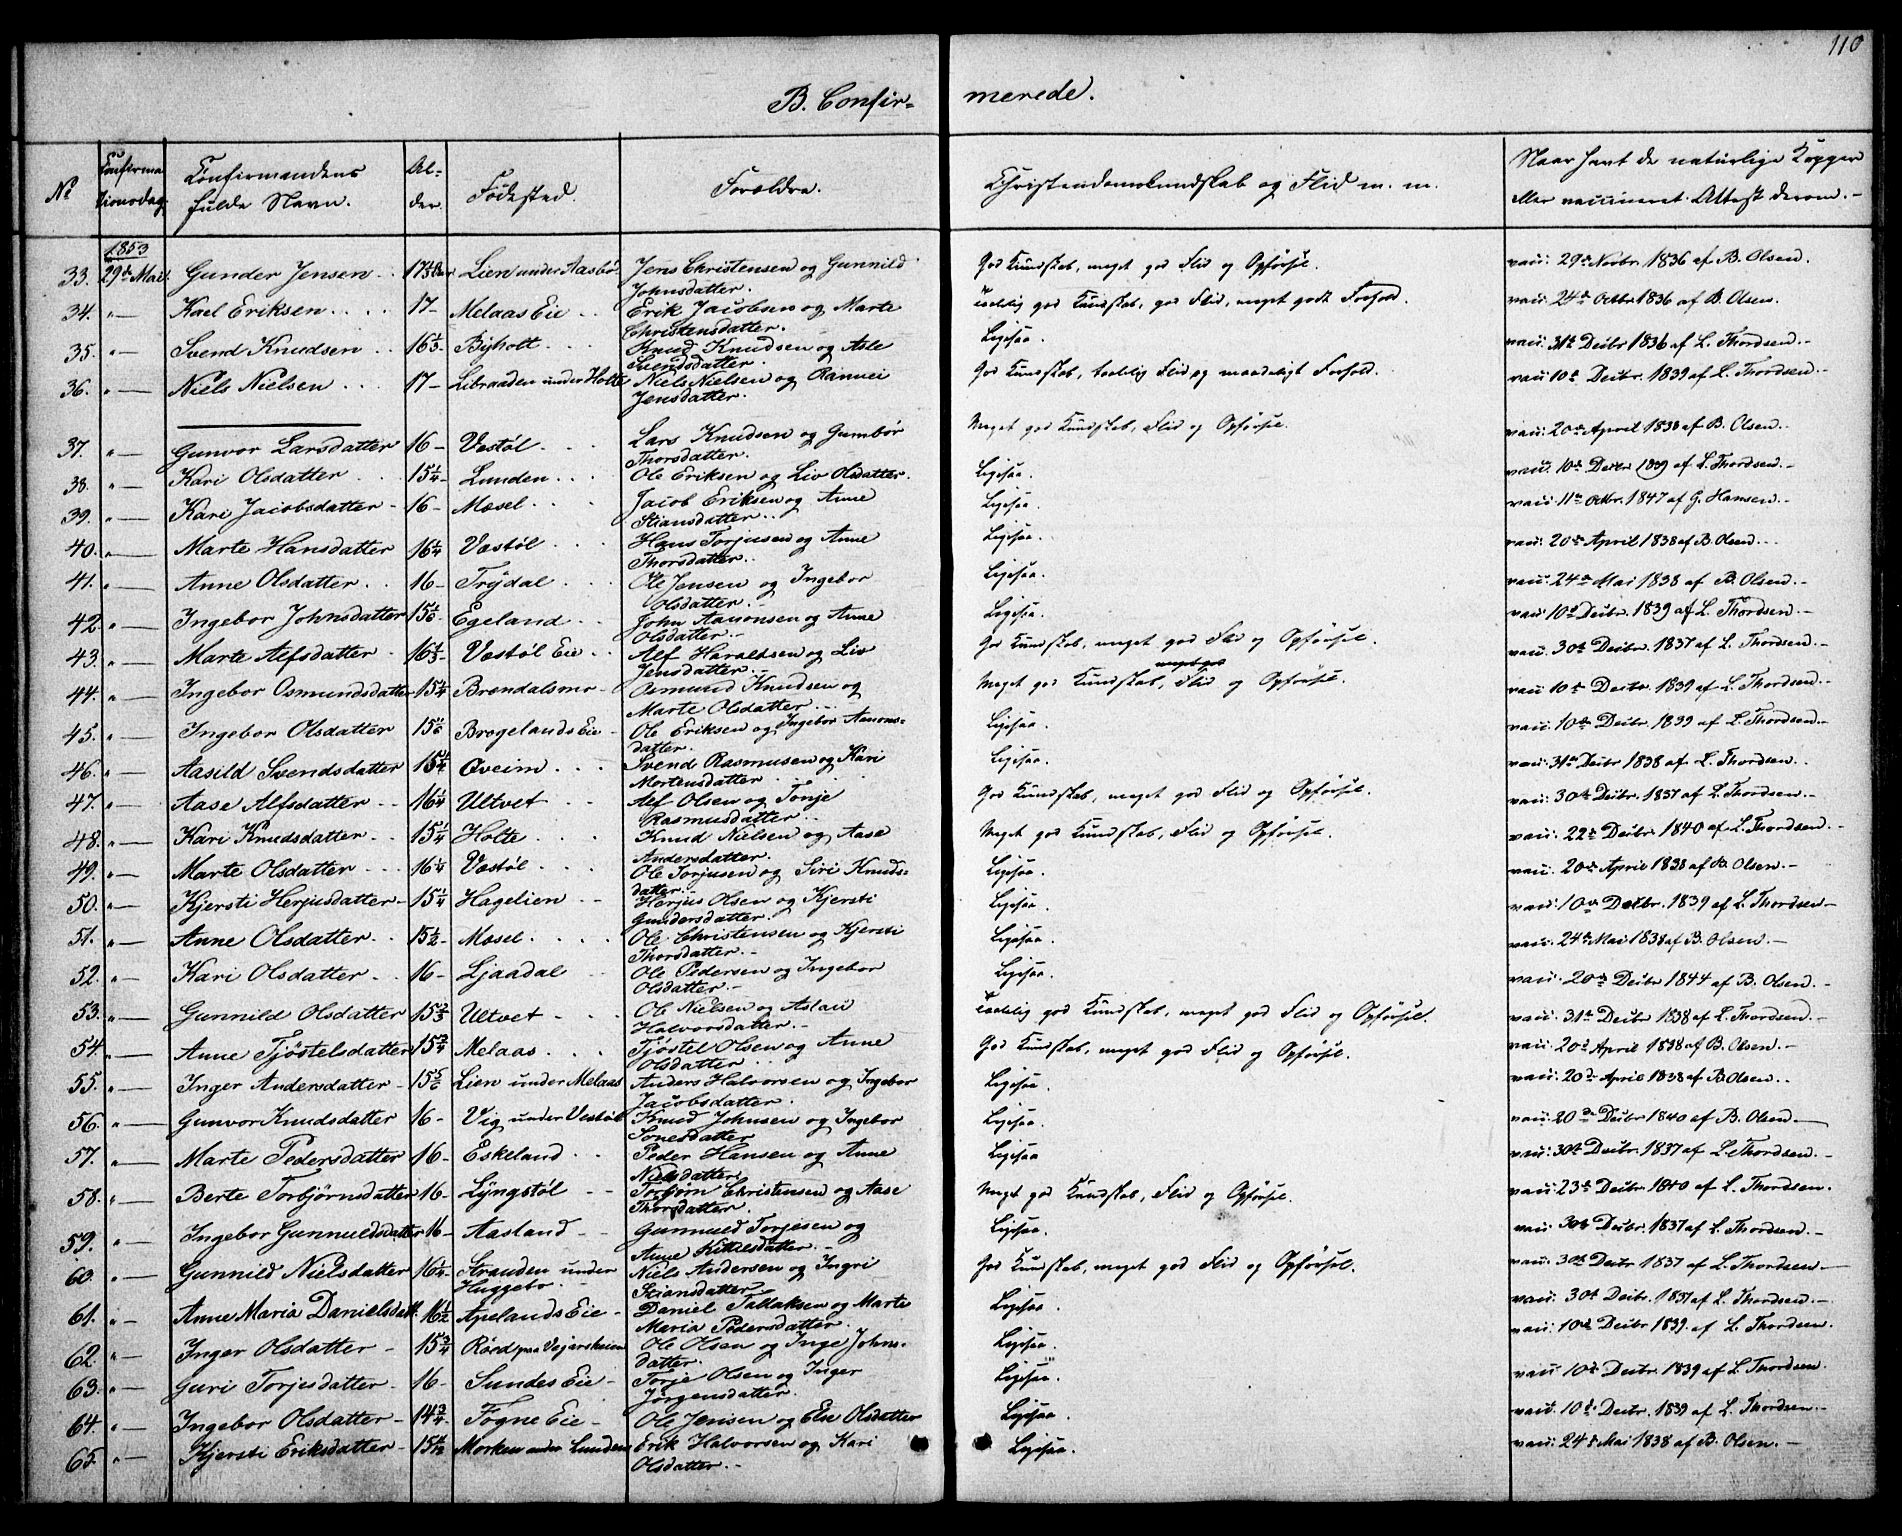 110
B. Confirmerede.
No Confirmationsdag. Confirmandens fulde Navn. Alder. Födested. Forældre. Christendomskundskab og Flid m. m. Naar havt de naturlige Kopper eller vaccineret. Attest derom.
1853
33. 29de Mai. Gunder Jensen Lien under Aasbö. Jens Christensen og Gunnild Johnsdatter. God Kundskab, meget god Flid og Opförsel. vacc. 29de Novbr. 1836 af B. Olsen.
34. " — Kael Eriksen 17 - Melaas Eie Erik Jacobsen og Marte Christensdatter. Taalelig god Kundskab, god Flid, meget godt Forhold. vacc. 24de Octbr 1836 af B. Olsen.
35. " — Svend Knudsen 16 1/3 Bijholt Knud Knudsen og Asle Svendsdatter. Ligesaa. vacc. 31te Decbr 1836 af L. Thordsen.
36. " — Niels Nielsen 17 - Libraaden under Holte Niels Nielsen og Rannei Jensdatter. God Kundskab, taalelig Flid og maadeligt Forhold. vacc. 10de Decbr. 1839 af L. Thordsen.
37. " — Gunvor Larsdatter 16 - Vestöl Lars Knudsen og Gumbör Thorsdatter. Meget god Kundskab, Flid og Opförsel. vacc. 20de April 1838 af B. Olsen.
38. " — Kari Olsdatter 15 1/4 Lunden Ole Eriksen og Liv Olsdatter. Ligesaa. vacc. 10de Decbr 1839 af L. Thordsen.
39. " — Kari Jacobsdatter 16 - Mosel Jacob Eriksen og Anne Stiansdatter. Ligesaa. vacc. 11te Octbr. 1847 af G. Hansen.
40. " — Marte Hansdatter 16 1/4 Vestöl Hans Torjusen og Anne Thorsdatter. Ligesaa. vacc. 20de April 1838 af B. Olsen.
41. " — Anne Olsdatter 16 - Tröjdal Ole Jensen og Ingebor Olsdatter. Ligesaa. vacc. 24de Mai 1838 af B. Olsen.
42. " — Ingebor Johnsdatter Egeland John Aanonsen og Anne Olsdatter. Ligesaa. vacc. 10de Decbr. 1839 af L. Thordsen.
43. " — Marte Alfsdatter 16 1/3 Vestöl Eie Alf Haraldsen og Liv Jensdatter. God Kundskab, meget god Flid og Opförsel. vacc. 30te Decbr. 1837 af L. Thordsen.
44. " — Ingebor Osmundsdatter 15 1/4 Brendalsmo Osmund Knudsen og Marte Olsdatter. Meget god Kundskab, meget god Flid og Opförsel. vacc. 10de Decbr. 1839 af L. Thordsen.
45. " — Ingebor Olsdatter Brogelands Eie Ole Eriksen og Ingebor Aanonsdatter. Ligesaa. vacc. 10de Decbr. 1839 af L. Thordsen.
46. " — Aasild Svendsdatter 15 1/4 Oveim Svend Rasmussen og Kari Mortensdatter Ligesaa. vacc. 31te Decbr 1838 af L. Thordsen.
47. " — Aase Alfsdatter 16 1/4 Ultvet Alf Olsen og Tonje Rasmusdatter. God Kundskab, meget god Flid og Opförsel. vacc. 30te Decbr. 1837 af L. Thordsen.
48. " — Kari Knudsdatter 15 1/4 Holte Knud Nielsen og Aase Andersdatter. Meget god Kundskab, Flid og Opförsel. vacc. 22de Decbr. 1840 af L. Thordsen.
49. " — Marte Olsdatter 16 1/4 Vestöl Ole Torjusen og Siri Knudsdatter. Ligesaa. vacc. 20de April 1838 af B. Olsen
50. " — Kjersti Herjusdatter 15 1/4 Hagelien Herjus Olsen og Kjersti Gundersdatter. Ligesaa. vacc. 10de Decbr. 1839 af L. Thordsen
51. " — Anne Olsdatter 15 1/2 Mosel Ole Christensen og Kjersti Thorsdatter. Ligesaa. vacc. 24de Mai 1838 af B. Olsen.
52. " — Kari Olsdatter 16 - Ljaadal Ole Pedersen og Ingebor Olsdatter. Ligesaa. vacc. 20de Decbr 1844 af B. Olsen.
53. " — Gunnild Olsdatter 15 2/3 Ultvet Ole Nielsen og Aslau Halvorsdatter. Taalelig god Kundskab, meget god Flid og Opförsel. vacc. 31te Decbr 1838 af L. Thordsen.
54. " — Anne Tjöstelsdatter 15 3/4 Melaas Tjöstel Olsen og Anne Olsdatter God Kundskab, meget god Flid og Opförsel. vacc. 20de April 1838 af B. Olsen
55. " — Inger Andersdatter 15 5/6 Lien under Melaas Anders Halvorsen og Ingebor Jacobsdatter. Ligesaa. vacc. 20de April 1838 af B. Olsen.
56. " — Gunvor Knudsdatter 16 - Vig under Vestöl Knud Johnsen og Ingebor Sonesdatter Ligesaa. vacc. 20de Decbr 1840 af B. Olsen.
57. " — Marte Pedersdatter 16 - Eskeland Peder Hansen og Anne Nielsdatter Ligesaa vacc. 30te Decbr. 1837 af L. Thordsen.
58. " — Berte Torbjörnsdatter 16 - Lyngstöl Torbjörn Christensen og Aase Thorsdatter. Meget god Kundskab, Flid og Opförsel. vacc. 23de Decbr. 1840 af L. Thordsen.
59. " — Ingebor Gunnuldsdatter 16 - Aasland Gunnuld Torjesen og Anne Kittelsdatter. Ligesaa. vacc. 30te Decbr. 1837 af L. Thordsen.
60. " — Gunnild Nielsdatter 16 1/4 Stranden under Huggebö. Niels Andersen og Ingri Stiansdatter God Kundskab, meget god Flid og Opförsel. vacc. 30te Decbr. 1837 af L. Thordsen.
61. " — Anne Maria Danielsdatt. 16 1/2 Apelands Eie Daniel Tallaksen og Marte Maria Pedersdatter. Ligesaa. vacc. 30te Decbr. 1837 af L. Thordsen.
62. " — Inger Olsdatter 15 3/4 Röed paa Vejerskeien Ole Olsen og Inge Johnsdatter. Ligesaa. vacc. 10de Decbr. 1839 af L. Thordsen.
63. " — Guri Torjusdatter 16 - Sundes Eie Torje Olsen og Inger Jörgensdatter. Ligesaa. vacc. 10de Decbr. 1839 af L. Thordsen.
64. " — Ingebor Olsdatter 14 3/4 Fogne Eie Ole Jensen og Else Olsdatter Ligesaa. vacc. 10de Decbr. 1839 af L. Thordsen.
65. " — Kjersti Eriksdatter Morken under Lunden Erik Halvorsen og Kari Olsdatter. Ligesaa. vacc. 24de Mai 1838 af B. Olsen.